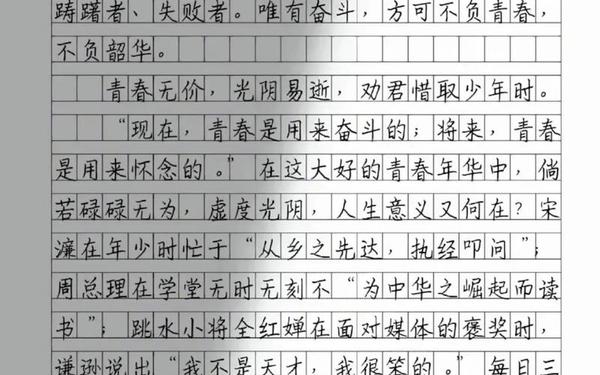 踌躇者、失败者。唯有奋斗，方可不负青春，
不负韶华。
青春无价，光阴易逝，劝君惜取少年时。
“现在，青春是用来奋斗的；将来，青春
是用来怀念的。”在这大好的青春年华中，倘
若碌碌无为，虚度光阴，人生意义又何在？宋
濂在年少时忙于“从乡之先达，执经叩问”；
周总理在学堂无时无刻不“为中华之崛起而读
书”；跳水小将全红婵在面对媒体的褒奖时，
谦逊说出“我不是天才，我很笨的。”每日三